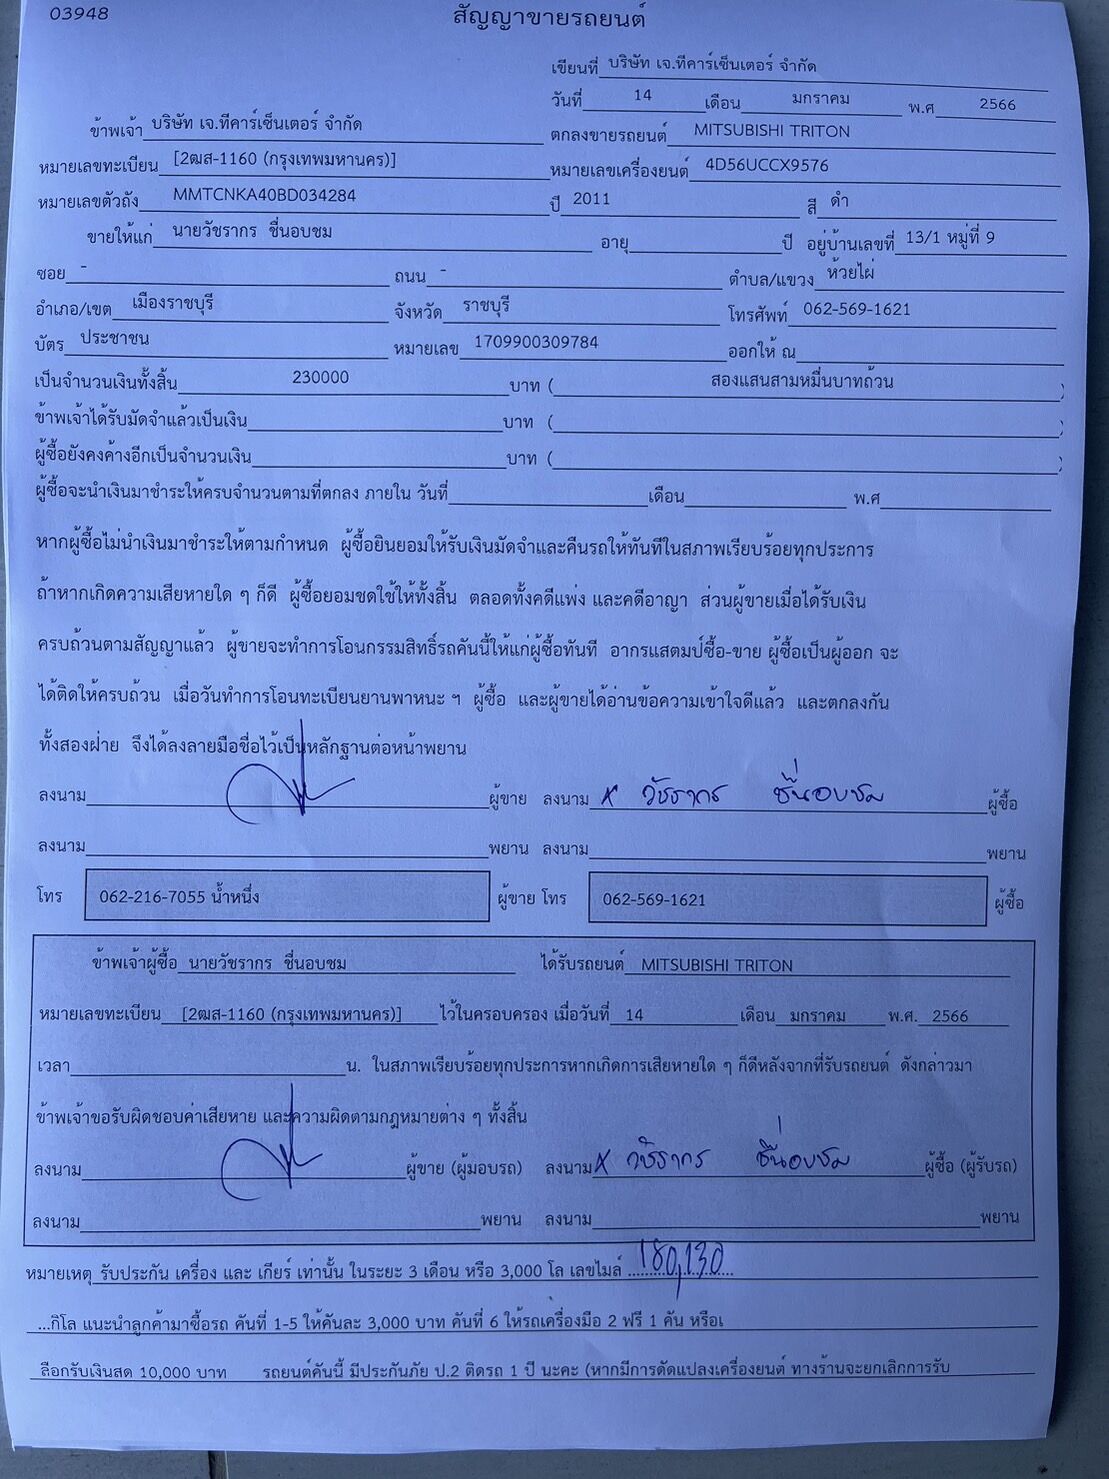 03948
สัญญาขายรถยนต์
เขียนที่ บริษัท เจ.ทีคาร์เซ็นเตอร์ จำกัด
วันที่ 14 เดือน มกราคม พ.ศ 2566
ข้าพเจ้า บริษัท เจ.ทีคาร์เซ็นเตอร์ จำกัด ตกลงขายรถยนต์ MITSUBISHI TRITON
หมายเลขทะเบียน [2ฒส-1160 (กรุงเทพมหานคร)] หมายเลขเครื่องยนต์ 4D56UCCX9576
หมายเลขตัวถัง MMTCNKA40BD034284 ปี 2011 สี ดำ
ขายให้แก่ นายวัชรากร ชื่นอบชม อายุ ปี อยู่บ้านเลขที่ 13/1 หมู่ที่ 9
ซอย - ถนน - ตำบล/แขวง ห้วยไผ่
อำเภอ/เขต เมืองราชบุรี จังหวัด ราชบุรี โทรศัพท์ 062-569-1621
บัตร ประชาชน หมายเลข 1709900309784 ออกให้ ณ
เป็นจำนวนเงินทั้งสิ้น 230000 บาท ( สองแสนสามหมื่นบาทถ้วน )
ข้าพเจ้าได้รับมัดจำแล้วเป็นเงิน บาท ( )
ผู้ซื้อยังคงค้างอีกเป็นจำนวนเงิน บาท ( )
ผู้ซื้อจะนำเงินมาชำระให้ครบจำนวนตามที่ตกลง ภายใน วันที่ เดือน พ.ศ
หากผู้ซื้อไม่นำเงินมาชำระให้ตามกำหนด ผู้ซื้อยินยอมให้รับเงินมัดจำและคืนรถให้ทันทีในสภาพเรียบร้อยทุกประการ
ถ้าหากเกิดความเสียหายใด ๆ ก็ดี ผู้ซื้อยอมชดใช้ให้ทั้งสิ้น ตลอดทั้งคดีแพ่ง และคดีอาญา ส่วนผู้ขายเมื่อได้รับเงิน
ครบถ้วนตามสัญญาแล้ว ผู้ขายจะทำการโอนกรรมสิทธิ์รถคันนี้ให้แก่ผู้ซื้อทันที อากรแสตมป์ซื้อ-ขาย ผู้ซื้อเป็นผู้ออก จะ
ได้ติดให้ครบถ้วน เมื่อวันทำการโอนทะเบียนยานพาหนะ ฯ ผู้ซื้อ และผู้ขายได้อ่านข้อความเข้าใจดีแล้ว และตกลงกัน
ทั้งสองฝ่าย จึงได้ลงลายมือชื่อไว้เป็นหลักฐานต่อหน้าพยาน
ลงนาม ผู้ขาย ลงนาม x วัชรากร ชื่นอบชม ผู้ซื้อ
ลงนาม พยาน ลงนาม พยาน
โทร 062-216-7055 น้ำหนึ่ง ผู้ขาย โทร 062-569-1621 ผู้ซื้อ
ข้าพเจ้าผู้ซื้อ นายวัชรากร ชื่นอบชม ได้รับรถยนต์ MITSUBISHI TRITON
หมายเลขทะเบียน [2ฒส-1160 (กรุงเทพมหานคร)] ไว้ในครอบครอง เมื่อวันที่ 14 เดือน มกราคม พ.ศ. 2566
เวลา น. ในสภาพเรียบร้อยทุกประการหากเกิดการเสียหายใด ๆ ก็ดีหลังจากที่รับรถยนต์ ดังกล่าวมา
ข้าพเจ้าขอรับผิดชอบค่าเสียหาย และความผิดตามกฎหมายต่าง ๆ ทั้งสิ้น
ลงนาม ผู้ขาย (ผู้มอบรถ) ลงนาม x วัชรากร ชื่นอบชม ผู้ซื้อ (ผู้รับรถ)
ลงนาม พยาน ลงนาม พยาน
หมายเหตุ รับประกัน เครื่อง และ เกียร์ เท่านั้น ในระยะ 3 เดือน หรือ 3,000 โล เลขไมล์ 180,130
...กิโล แนะนำลูกค้ามาซื้อรถ คันที่ 1-5 ให้คันละ 3,000 บาท คันที่ 6 ให้รถเครื่องมือ 2 ฟรี 1 คัน หรือเ
ลือกรับเงินสด 10,000 บาท รถยนต์คันนี้ มีประกันภัย ป.2 ติดรถ 1 ปี นะคะ (หากมีการดัดแปลงเครื่องยนต์ ทางร้านจะยกเลิกการรับ